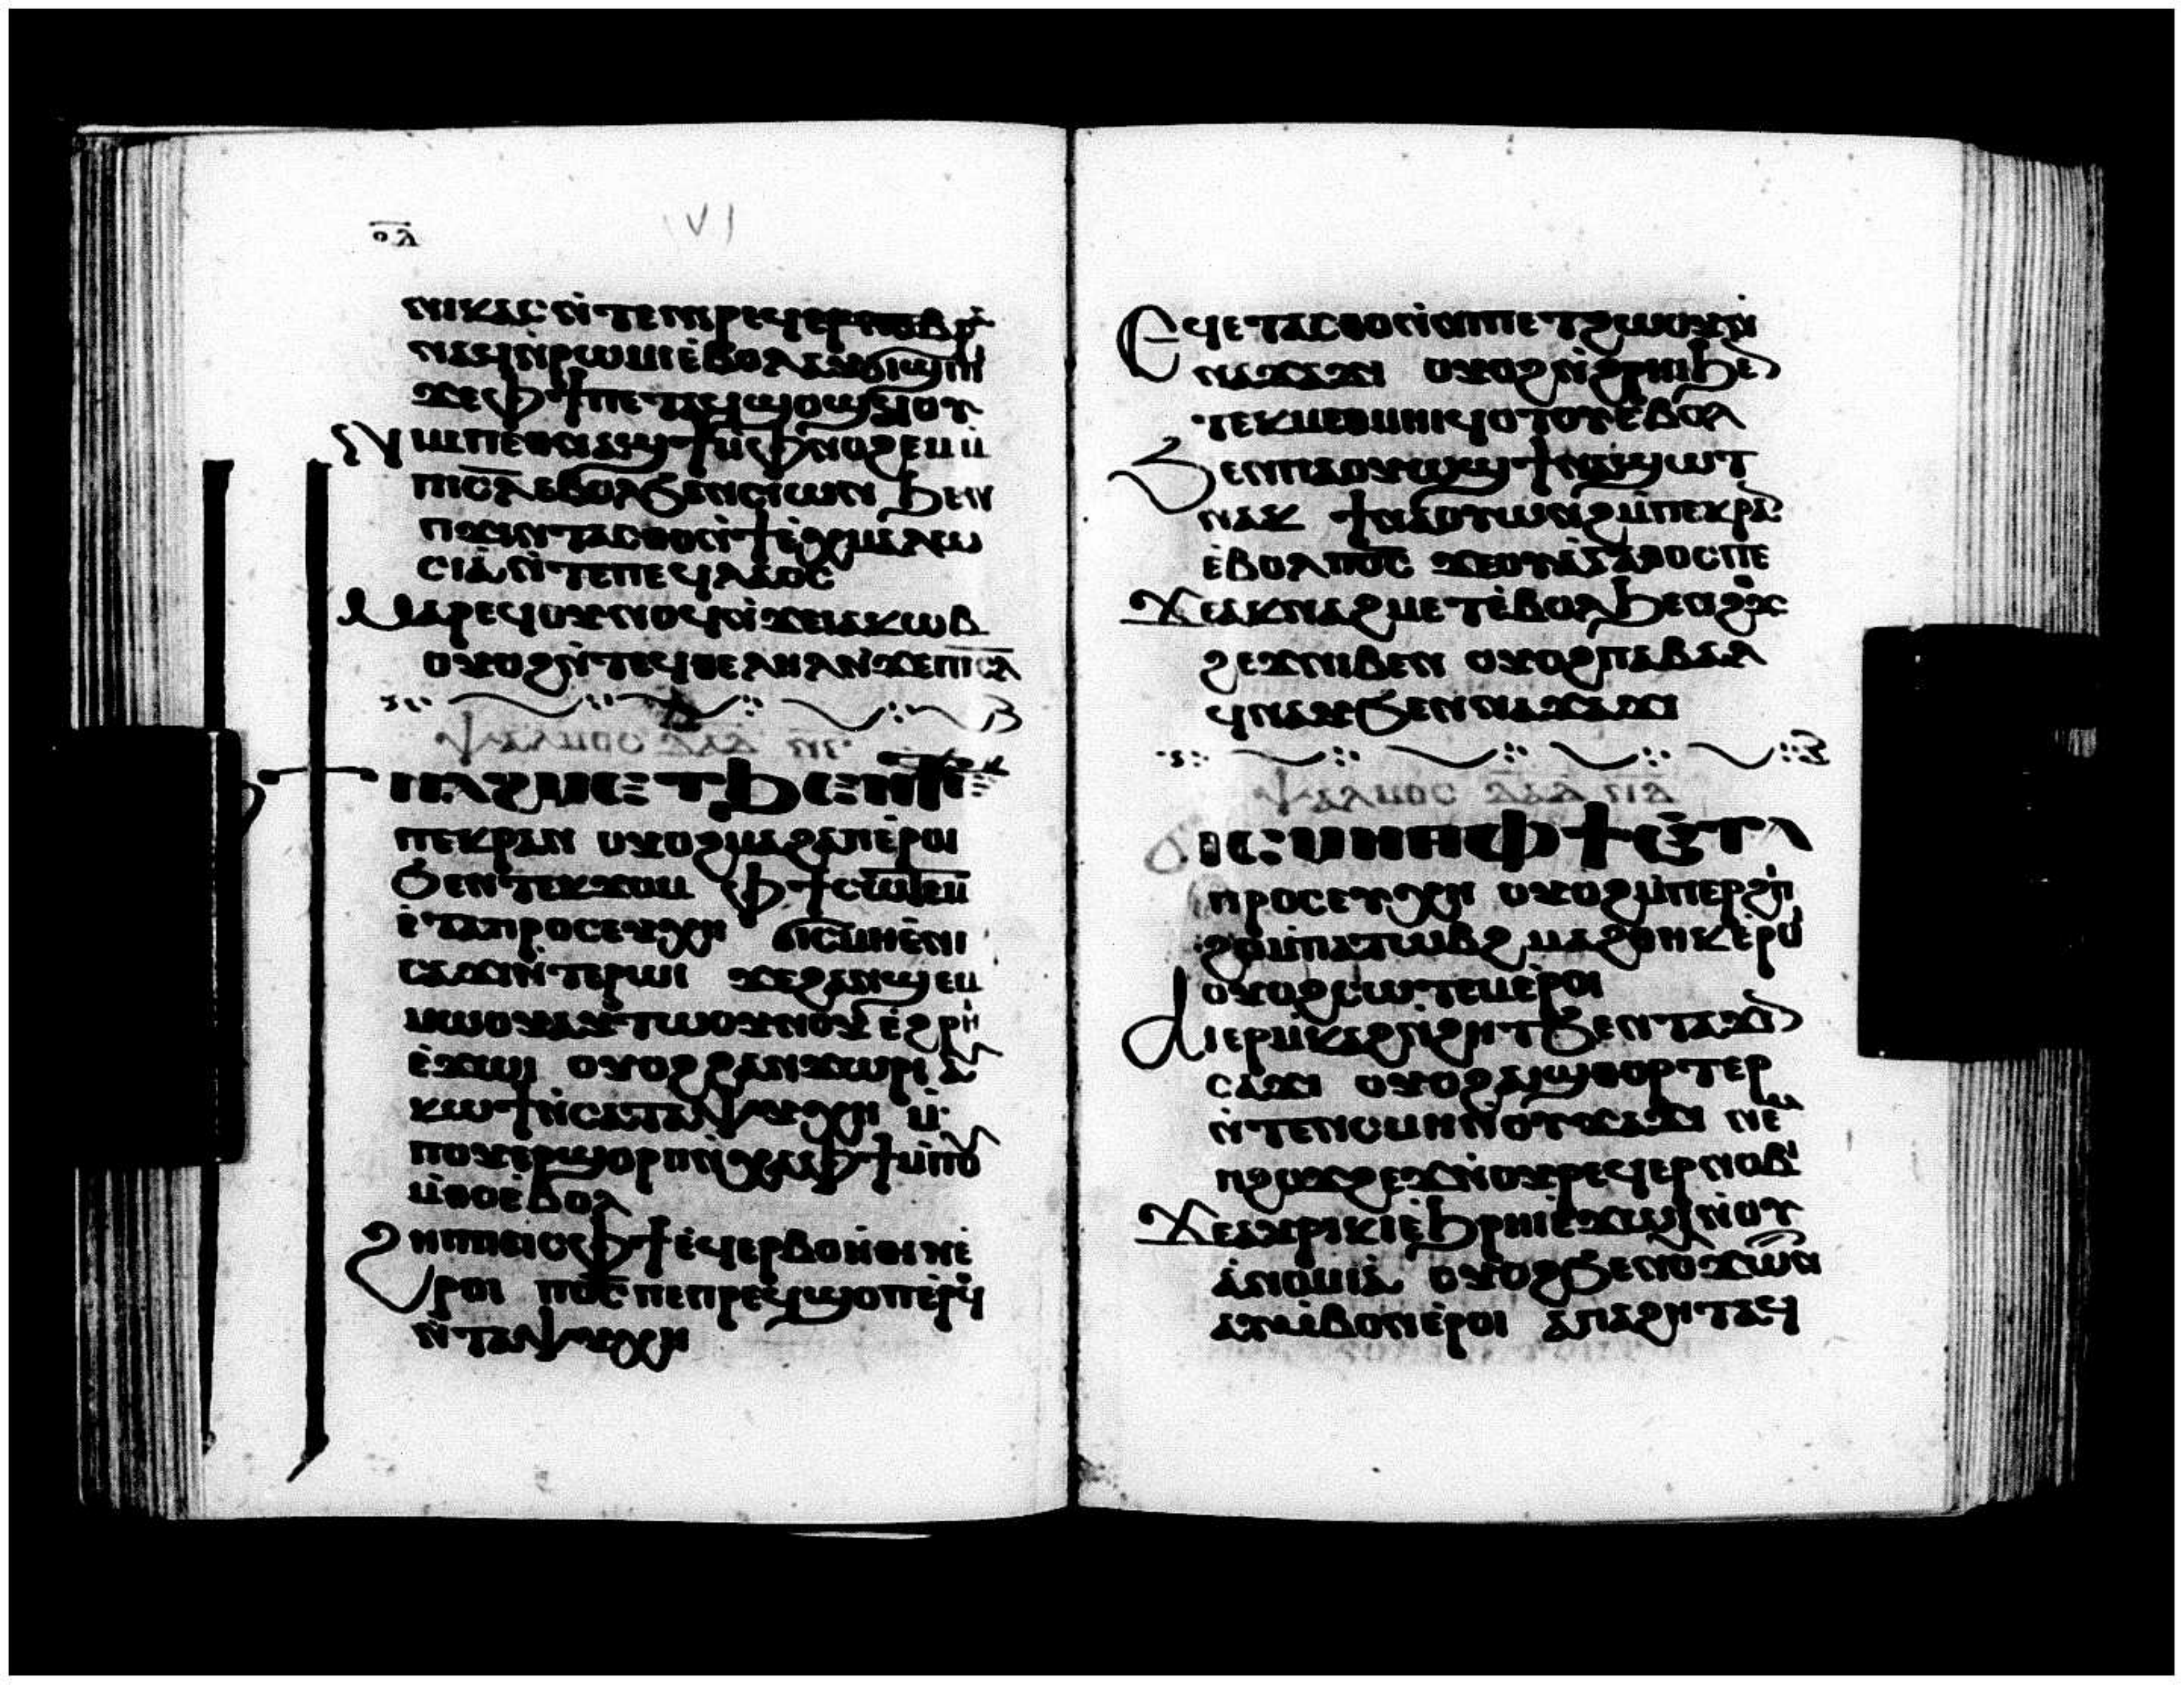 ⲟⲁ
ⲛⲓⲕⲁⲥ ⲛ̀ⲧⲉ ⲛⲓⲣⲉϥⲉⲣ
ⲛⲁϥⲛ̀ⲣⲱⲙⲓ ⲉ̀ⲃⲟⲗ ⲁⲩϭⲓϣⲓⲡⲓ
ϫⲉ ⲫϯ ⲡⲉⲧⲁϥϣⲟϣϥⲟⲩ
ⲛⲓⲙ ⲡⲉⲑⲛⲁϯ ⲙ̀ⲫⲛⲟϩⲉⲙ ⲙ̀
ⲡⲓⲥ̅ⲗ̅ ⲉⲃⲟⲗ ϧⲉⲛ ⲥⲓⲱⲛ ϧⲉⲛ
ⲡϫⲓⲛⲧⲁⲥⲑⲟ ⲛ̀ϯⲉ̀ⲭⲙⲁⲗⲱ
ⲥⲓⲁ̀ ⲛ̀ⲧⲉ ⲡⲉϥⲗⲁⲟⲥ
ⲙⲁⲣⲉϥⲟⲩⲛⲟϥ ⲛ̀ϫⲉ ⲓⲁⲕⲱⲃ
ⲟⲩⲟϩ ⲛ̀ⲧⲉϥⲑⲉⲗⲏⲗ ⲛ̀ϫⲉ ⲡⲓⲥ̅ⲗ̅
ⲯⲁⲗⲙⲟⲥ ⲇⲁⲇ ⲛⲅ
ⲛⲁϩⲙⲉⲧ ϧⲉⲛ
ⲡⲉⲕⲣⲁⲛ ⲟⲩⲟϩ ⲙⲁϩⲁⲡ ⲉ̀ⲣⲟⲓ
ϧⲉⲛ ⲧⲉⲕϫⲟⲙ ⲫϯ ⲥⲱⲧⲉⲙ
ⲉ̀ⲧⲁⲡⲣⲟⲥⲉⲩⲭⲏ ϭⲓⲥⲙⲏ ⲉ̀ⲛⲓ
ⲥⲁϫⲓ ⲛ̀ⲧⲉ ⲣⲱⲓ ϫⲉ ϩⲁⲛϣⲉⲙ
ⲙⲱⲟⲩ ⲁⲩⲧⲱⲟⲩⲛⲟⲩ ⲉ̀ϩⲣⲏⲓ
ⲉ̀ϫⲱⲓ ⲟⲩⲟϩ ϩⲁⲛϫⲱⲣⲓ ⲁⲩ
ⲕⲱϯ ⲛ̀ⲥⲁ ⲧⲁⲯⲩⲭⲏ ⲙ̀
ⲡⲟⲩⲉⲣϣⲟⲣⲡ ⲛ̀ⲭⲁ ⲫϯ ⲙ̀ⲡⲟⲩ
ⲙ̀ⲑⲟ ⲉ̀ⲃⲟⲗ
ϩⲏⲡⲡⲉ ⲓⲥ ⲫϯ ⲉϥⲉⲣⲃⲟⲏ̀ⲑⲓⲛ ⲉ̀
ⲣⲟⲓ ⲡⲟ̅ⲥ̅ ⲡⲉ ⲡⲣⲉϥϣⲟⲡ ⲉ̀ⲣϥ
ⲛ̀ⲧⲁⲯⲩⲭⲏ
ⲉϥⲉⲧⲁⲥⲑⲟ ⲛ̀ⲛⲓⲡⲉⲧϩⲱⲟⲩ ⲛ̀
ⲛⲁϫⲁϫⲓ ⲟⲩⲟϩ ⲛ̀ϩⲣⲏⲓ ϧⲉⲛ
ⲧⲉⲕⲙⲉⲑⲙⲏⲓ ϥⲟⲧⲟⲩ ⲉ̀ⲃⲟⲗ
ϧⲉⲛ ⲡⲁⲟⲩⲱϣ ϯⲛⲁϣⲱⲧ
ⲛⲁⲕ ϯⲛⲁⲟⲩⲱⲛϩ ⲙ̀ⲡⲉⲕⲣⲁⲛ
ⲉ̀ⲃⲟⲗ ⲡⲟ̅ⲥ̅ ϫⲉ ⲟⲩⲁ̀ⲅⲁⲑⲟⲥ ⲡⲉ
ϫⲉ ⲁⲕⲛⲁϩⲙⲉⲧ ⲉ̀ⲃⲟⲗ ϧⲉⲛ ϩⲟϫ
ϩⲉϫ ⲛⲓⲃⲉⲛ ⲟⲩⲟϩ ⲡⲁⲃⲁⲗ
ϥⲛⲁⲩ ϧⲉⲛ ⲛⲁϫⲁϫⲓ
ⲯⲁⲗⲙⲟⲥ ⲇⲁⲇ ⲛⲇ
ϭⲓⲥⲙⲏ ⲫϯ ⲉ̀ⲧⲁ
ⲡⲣⲟⲥⲉⲩⲭⲏ ⲟⲩⲟϩ ⲙ̀ⲡⲉⲣϩⲓ
ϩⲟ ⲙ̀ⲡⲁⲧⲱⲃϩ ⲙⲁϩⲑⲏⲕ ⲉ̀ⲣⲟⲓ
ⲟⲩⲟϩ ⲥⲱⲧⲉⲙ ⲉ̀ⲣⲟⲓ
ⲁⲓⲉⲣⲙ̀ⲕⲁϩ ⲛ̀ϩⲏⲧ ϧⲉⲛ ⲡⲁϫⲓⲛ
ⲥⲁϫⲓ ⲟⲩⲟϩ ⲁⲓϣⲑⲟⲣⲧⲉⲣ
ⲛ̀ⲧⲉⲛ ⲥⲙⲏ ⲛ̀ⲟⲩϫⲁϫⲓ ⲛⲉⲙ
ⲡϩⲟϫϩⲉϫ ⲛ̀ⲟⲩⲣⲉϥⲉⲣⲛⲟⲃⲓ
ϫⲉ ⲁⲩⲣⲓⲕⲓ ⲉ̀ϧⲣⲏⲓ ⲉ̀ϫⲱⲓ ⲛ̀ⲟⲩ
ⲁ̀ⲛⲟⲙⲓⲁ̀ ⲟⲩⲟϩ ϧⲉⲛ ⲟⲩϫⲱⲛⲧ
ⲁⲩⲙ̀ⲃⲟⲛ ⲉ̀ⲣⲟⲓ ⲁ̀ ⲡⲁϩⲏⲧ ⲁϥ